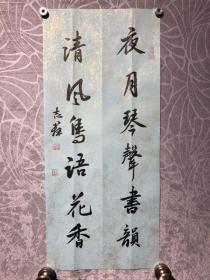 夜月琴聲書韻
清風鳥語花香